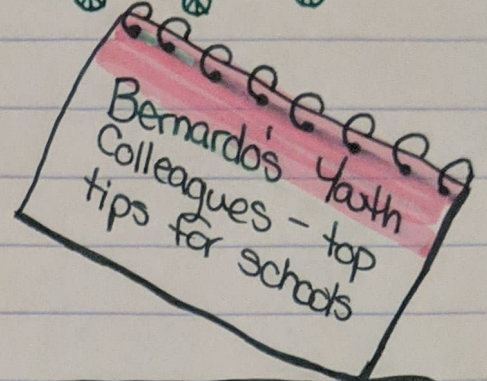 Bernardo's Youth
Colleagues - top
tips for schools